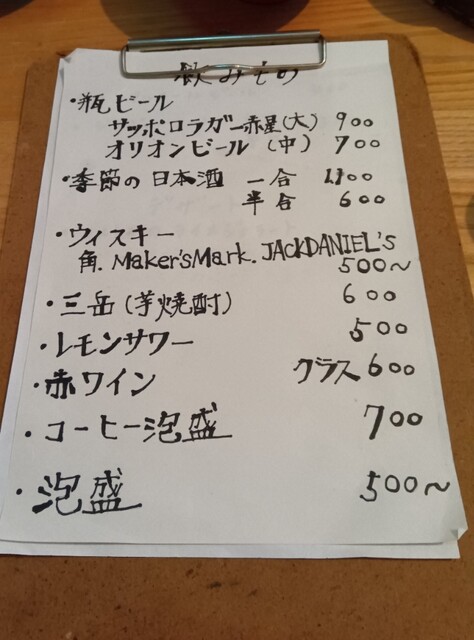 飲みもの
・瓶ビール
サッポロラガー赤星(大) 900
オリオンビール (中) 700
・季節の日本酒 一合 1,100
半合 600
・ウィスキー
角. Maker'sMark. JACKDANIEL's
500〜
・三岳(芋焼酎) 600
・レモンサワー 500
・赤ワイン グラス 600
・コーヒー泡盛 700
・泡盛 500〜